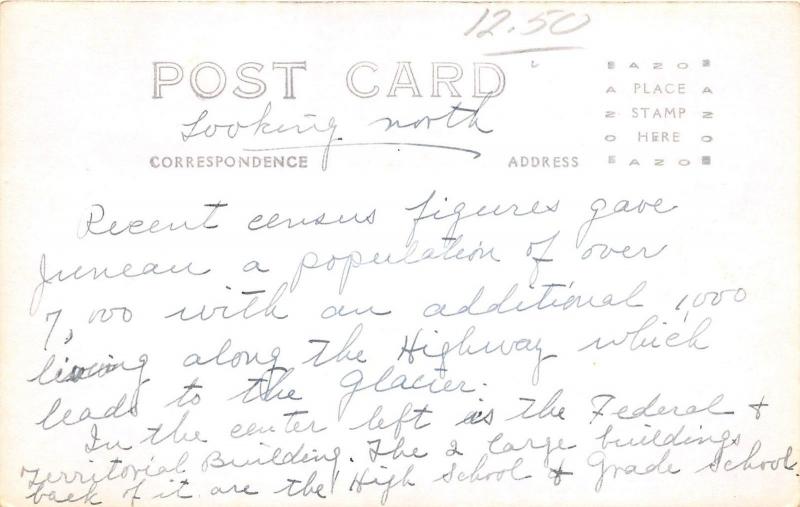 12.50
POST CARD
Looking north
CORRESPONDENCE
ADDRESS
AZO
PLACE
STAMP
HERE
AZO
Recent census figures gave
Juneau a population of over
7,000 with an additional 1,000
living along the Highway which
leads to the Glacier.
In the center left is the Federal &
Territorial Building. The 2 large buildings
back of it are the High School & Grade School.